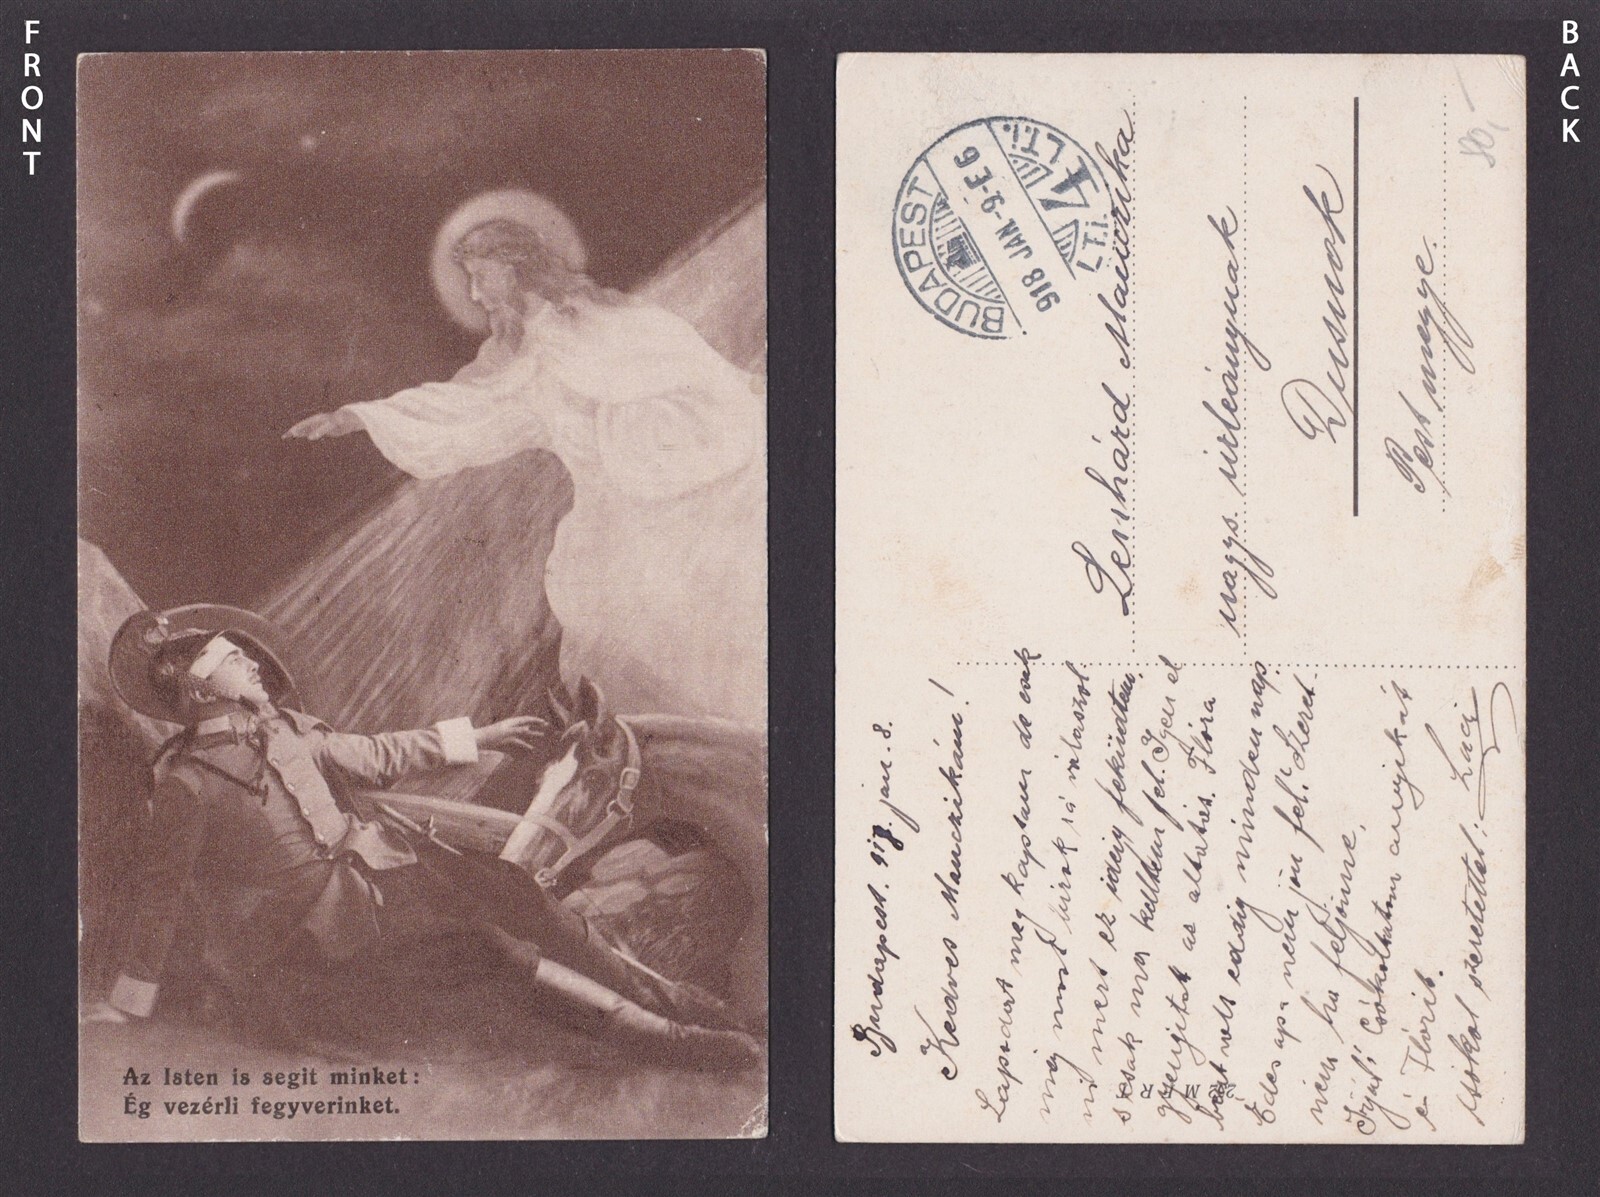 FRONT
BACK
Az Isten is segit minket:
Ég vezérli fegyverinket.
BUDAPEST
918 JAN.-9.-E6
4
L.T.i.
L.T.i.
80,-
Lenhárd Manczika
nagys. úrleánynak
Dusnok
Pest megye.
Budapest. 917. jan. 8.
Kedves Manczikám!
Lapodat meg kaptam de csak
még most birok rá válaszol
ni mert ez ideig feküdtem,
csak ma keltem fel. Igen el
gyengitet az altatás. Flóra
volt eddig minden nap.
Édes apa nem jön fel. Szeret
ném ha feljönne.
Gyuri Csókoltatom anyikát
és Flórit.
csókol szeretettel: Laci